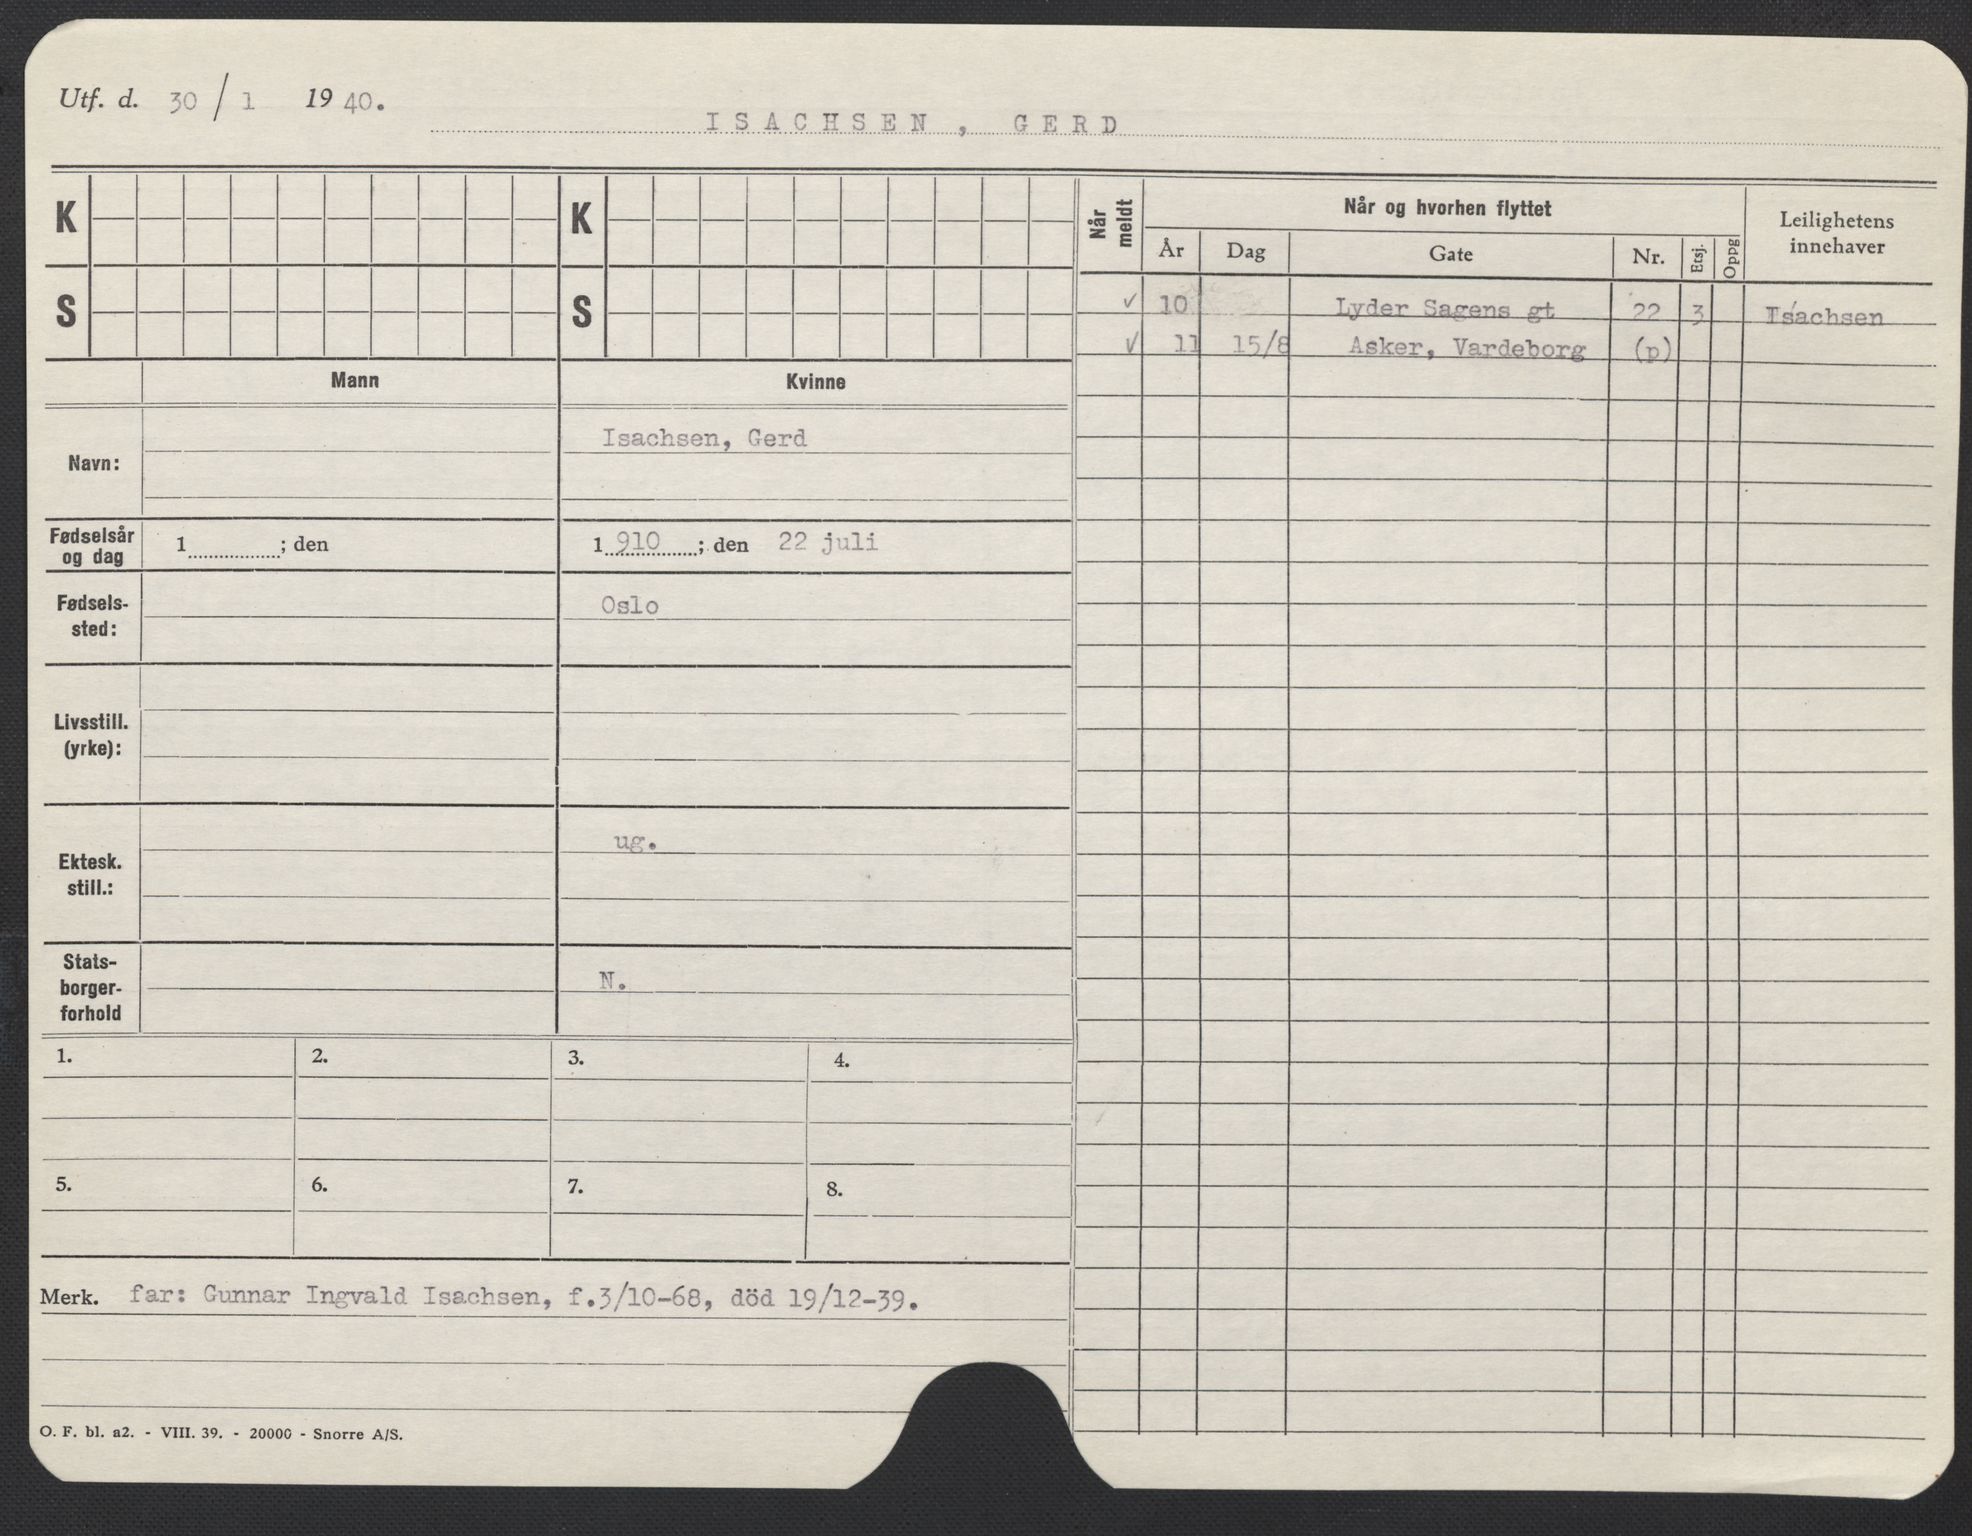 Utf. d. 30 / 1 19 40.
ISACHSEN, GERD
K K
S S
Mann Kvinne
Navn: Isachsen, Gerd
Fødselsår og dag 1 ; den 1 910 ; den 22 juli
Fødsels-
sted: Oslo
Livsstill.
(yrke):
Ektesk.
still.: ug.
Stats-
borger-
forhold N.
1. 2. 3. 4.
5. 6. 7. 8.
Merk. far: Gunnar Ingvald Isachsen, f.3/10-68, död 19/12-39.
O. F. bl. a2. - VIII. 39. - 20000 - Snorre A/S.
Når meldt
Når og hvorhen flyttet
År Dag Gate Nr. Etsj. Oppg
Leilighetens
innehaver
✓ 10 Lyder Sagens gt 22 3 Isachsen
✓ 11 15/8 Asker, Vardeborg (p)